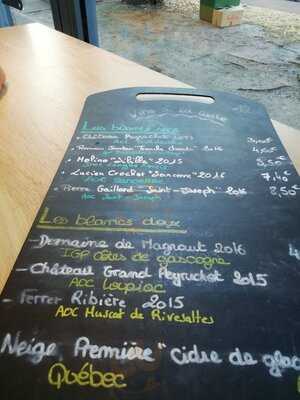 Vins à la carte
Les blancs secs
- Château Peyruchet 2015 3,00€
- Romain 2016 4,50€
- Molino "Sibilla" 2015 3,50€
- Lucien Crochet "Sancerre" 2015 7,40€
AOC Sancerre
- Pierre Gaillard "Saint-Joseph" 2016 8,50
AOC Saint-Joseph
Les blancs doux
- Domaine de Magnaut 2016 4
IGP côtes de gascogne
- Château Grand Peyruchet 2015
AOC Loupiac
- Ferrer Ribière 2015
AOC Muscat de Rivesaltes
Neige "Première" cidre de glac
Québec